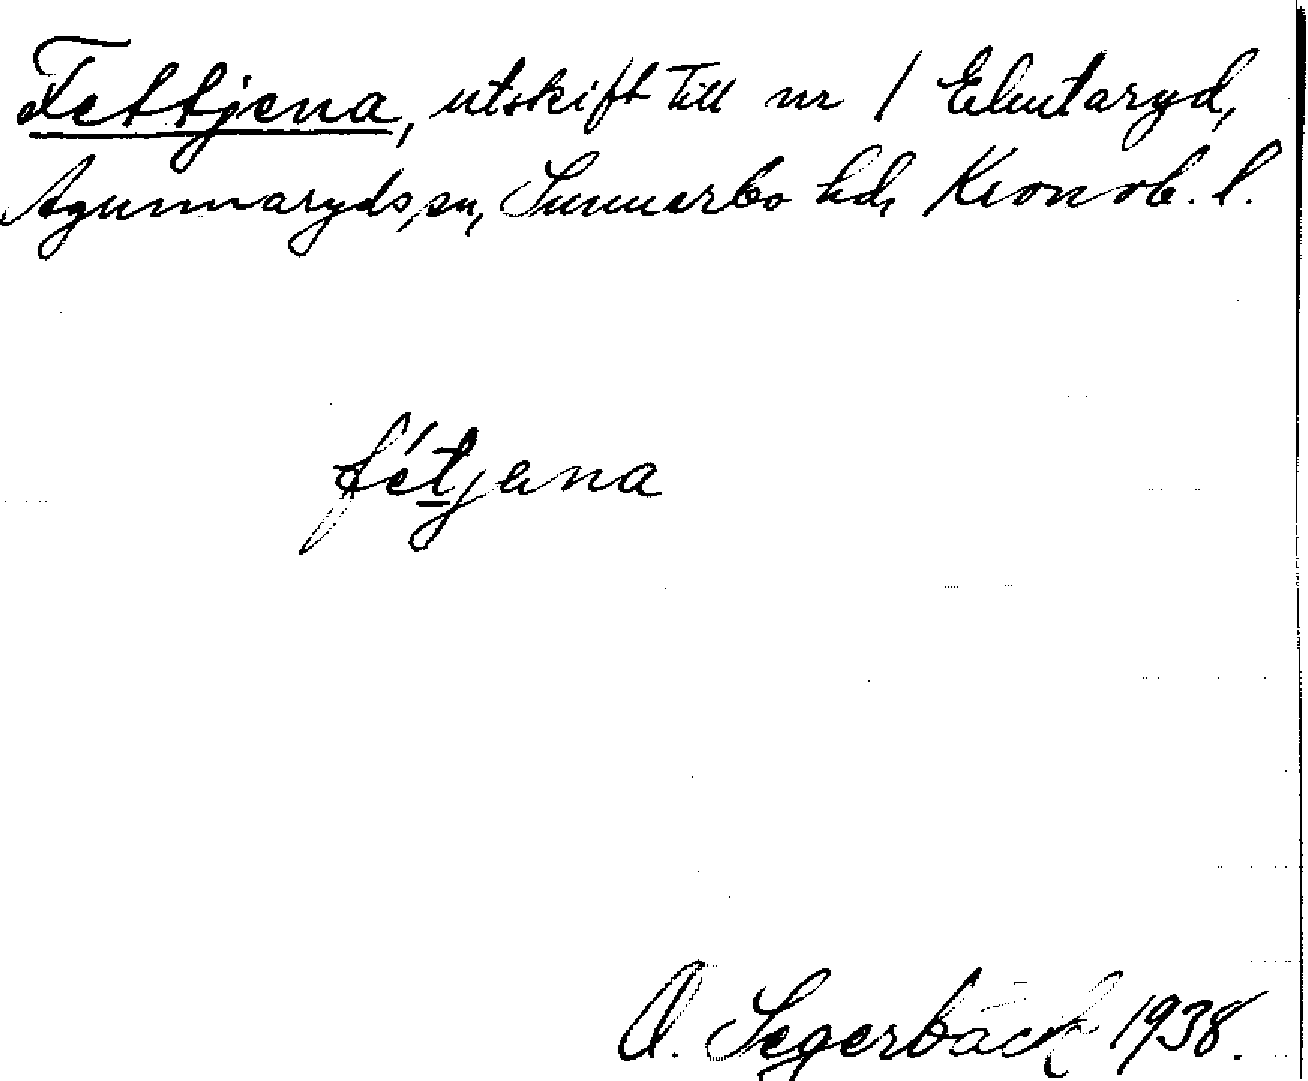 Fettjena, utskift till nr 1 Elmtaryd,
Agunnaryds sn, Sunnerbo hd, Kronob. l.
fétjena
O. Segerbäck 1938.